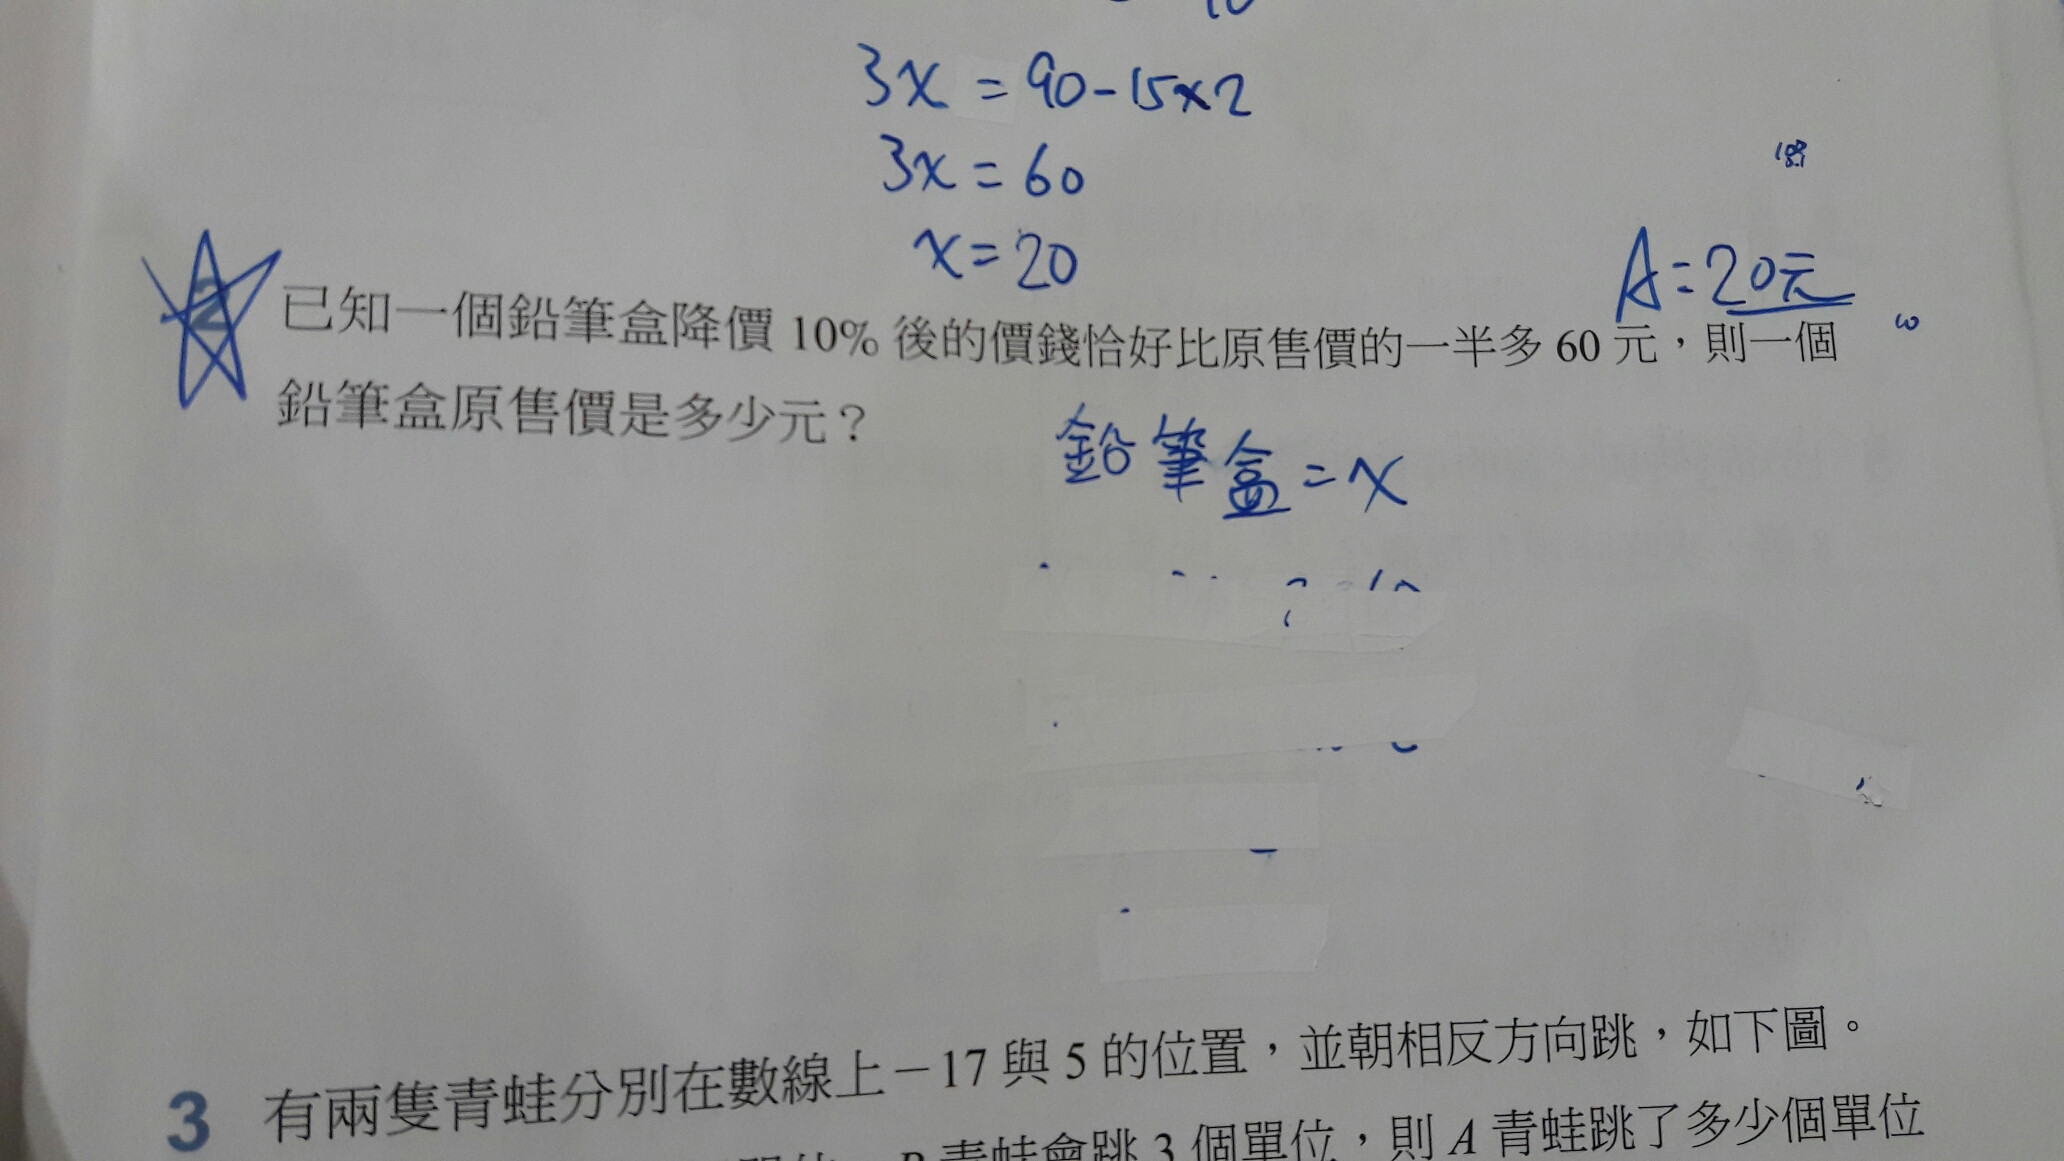 3x = 90-15×2
3x = 60
x = 20
A = 20元
2 已知一個鉛筆盒降價 10% 後的價錢恰好比原售價的一半多 60 元，則一個
鉛筆盒原售價是多少元？
鉛筆盒 = x
3 有兩隻青蛙分別在數線上－17 與 5 的位置，並朝相反方向跳，如下圖。
青蛙會跳 3 個單位，則 A 青蛙跳了多少個單位